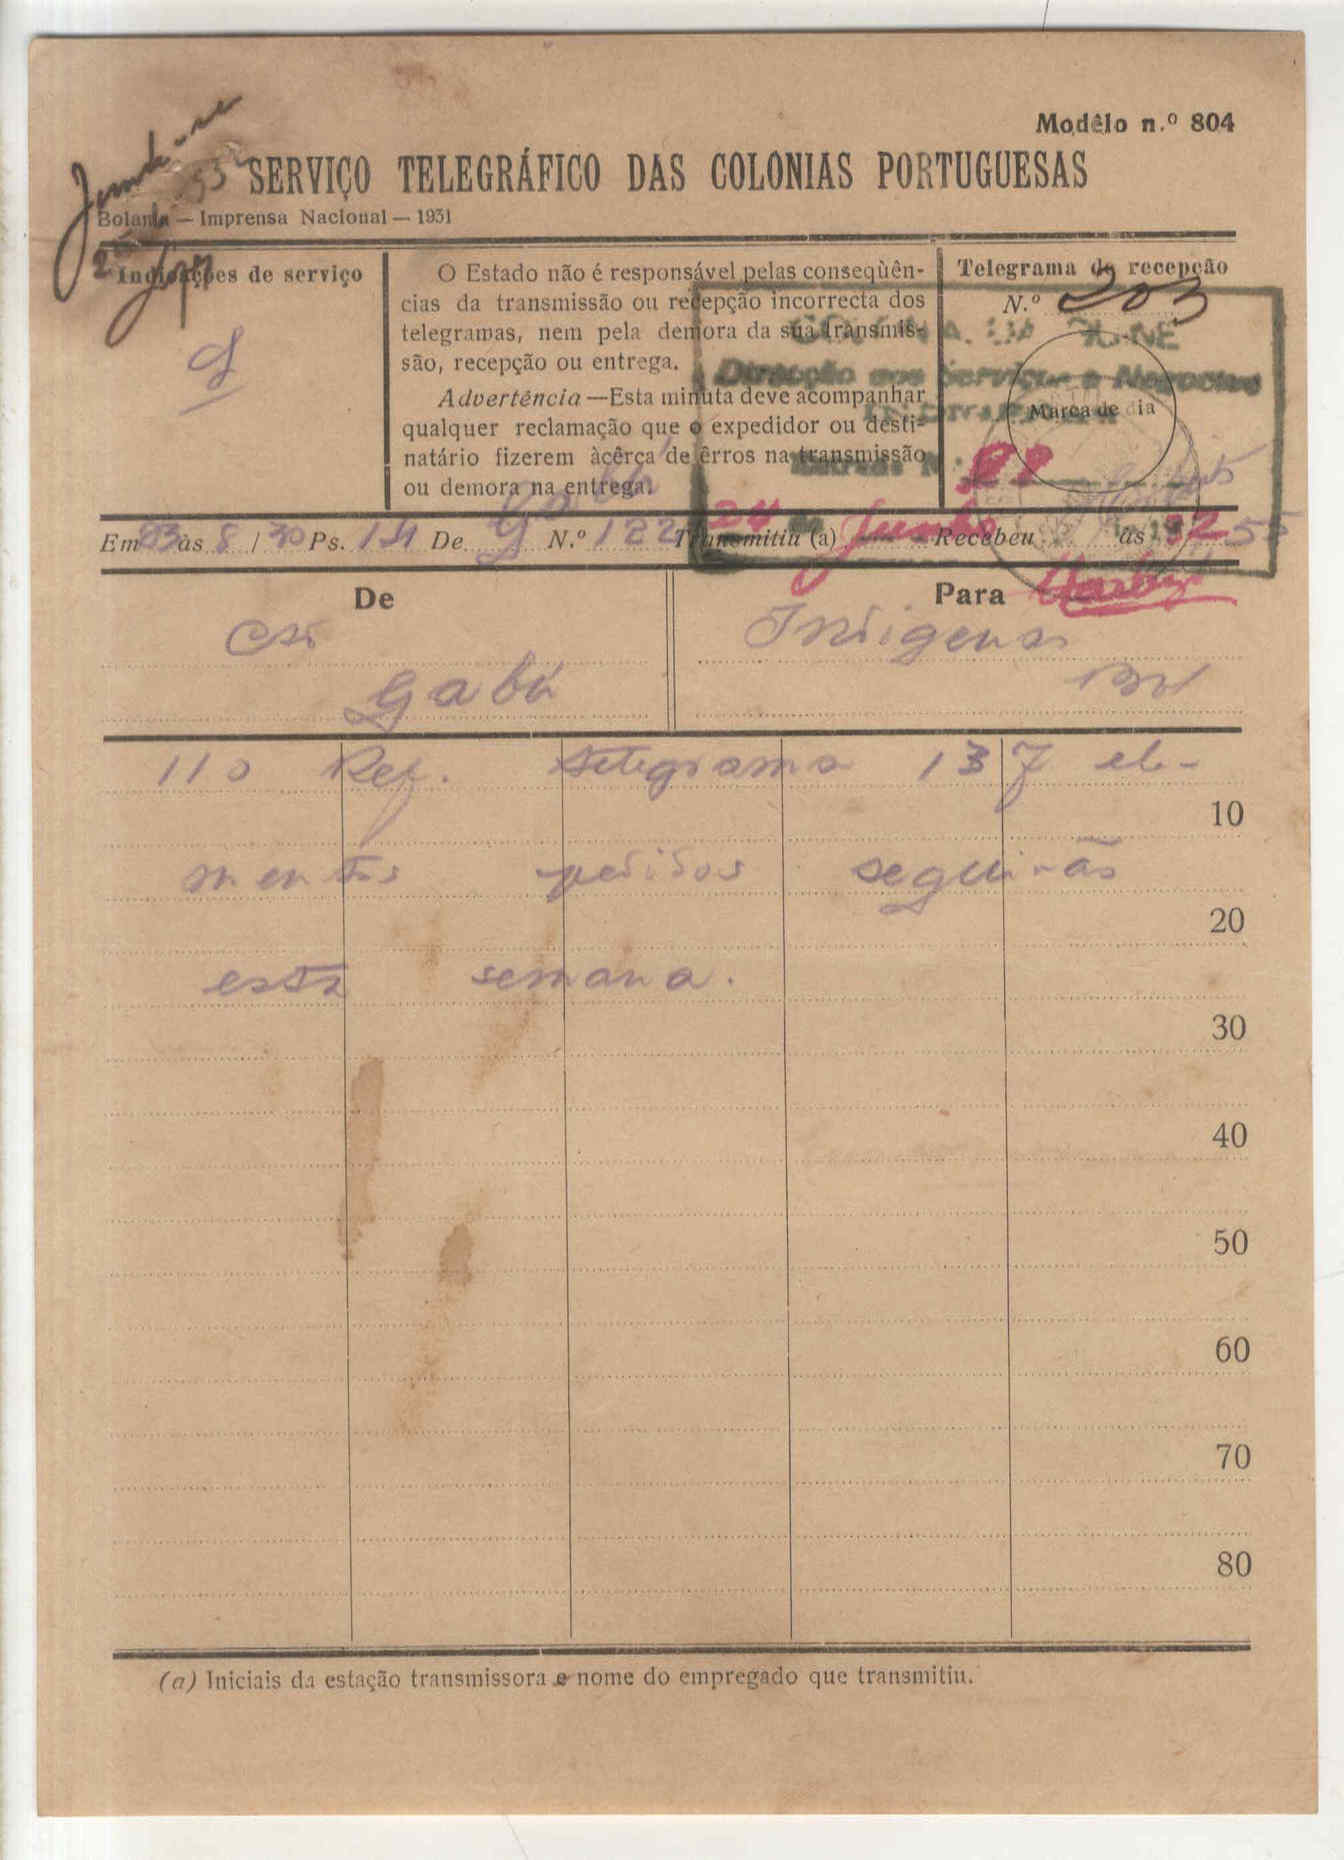 Modêlo n.º 804
Junte-se
SERVIÇO TELEGRÁFICO DAS COLONIAS PORTUGUESAS
Bolama — Imprensa Nacional — 1931
Indicações de serviço
O Estado não é responsável pelas conseqüên-
cias da transmissão ou recepção incorrecta dos
telegramas, nem pela demora da sua transmis-
são, recepção ou entrega.
Advertência — Esta minuta deve acompanhar
qualquer reclamação que o expedidor ou desti-
natário fizerem àcêrca de êrros na transmissão
ou demora na entrega.
Telegrama de recepção
N.º 203
COLONIA DA GUINE
Direcção dos Serviços e Negocios
INDIGENAS
Marca de dia
Entrada N.º
Gabú
24 de Junho 32
Em 23 às 8 / 30 Ps. 14 De G N.º 122 Transmitiu (a) Recebeu às 55
De
Para
Gabú
Indigenas
110 Ref. telegrama 137 ele-
10
mentos pedidos seguirão
20
esta semana.
30
40
50
60
70
80
(a) Iniciais da estação transmissora e nome do empregado que transmitiu.